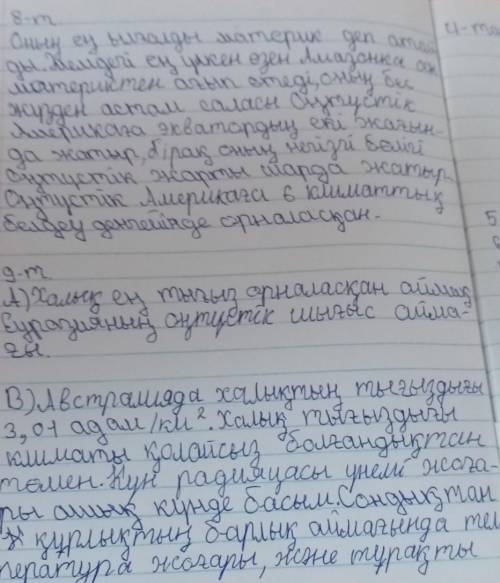 8-т
Оның ең ылғалды материк деп атай
ды. Жемдегі ең үлкен өзен Амазонка осы
материктен ағып өтеді, оның бес
жүзден астам саласы Оңтүстік
Америкаға экватордың екі жағын-
да жатыр, бірақ оның негізгі бөлігі
оңтүстік жарты шарда жатыр.
Оңтүстік Америкаға 6 климаттық
белдеу деңгейінде орналасқан.
9-т
А) Халық ең тығыз орналасқан аймақ
Еуразияның оңтүстік шығыс айма-
ғы.
В) Австралияда халықтың тығыздығы
3,01 адам/км². Халық тығыздығы
климаты қолайсыз болғандықтан
төмен. Күн радиациясы үнемі жоға-
ры ашық күнде басым. Сондықтан
құрлықтың барлық аймағында тем
пература жоғары, және тұрақты
4-т
5